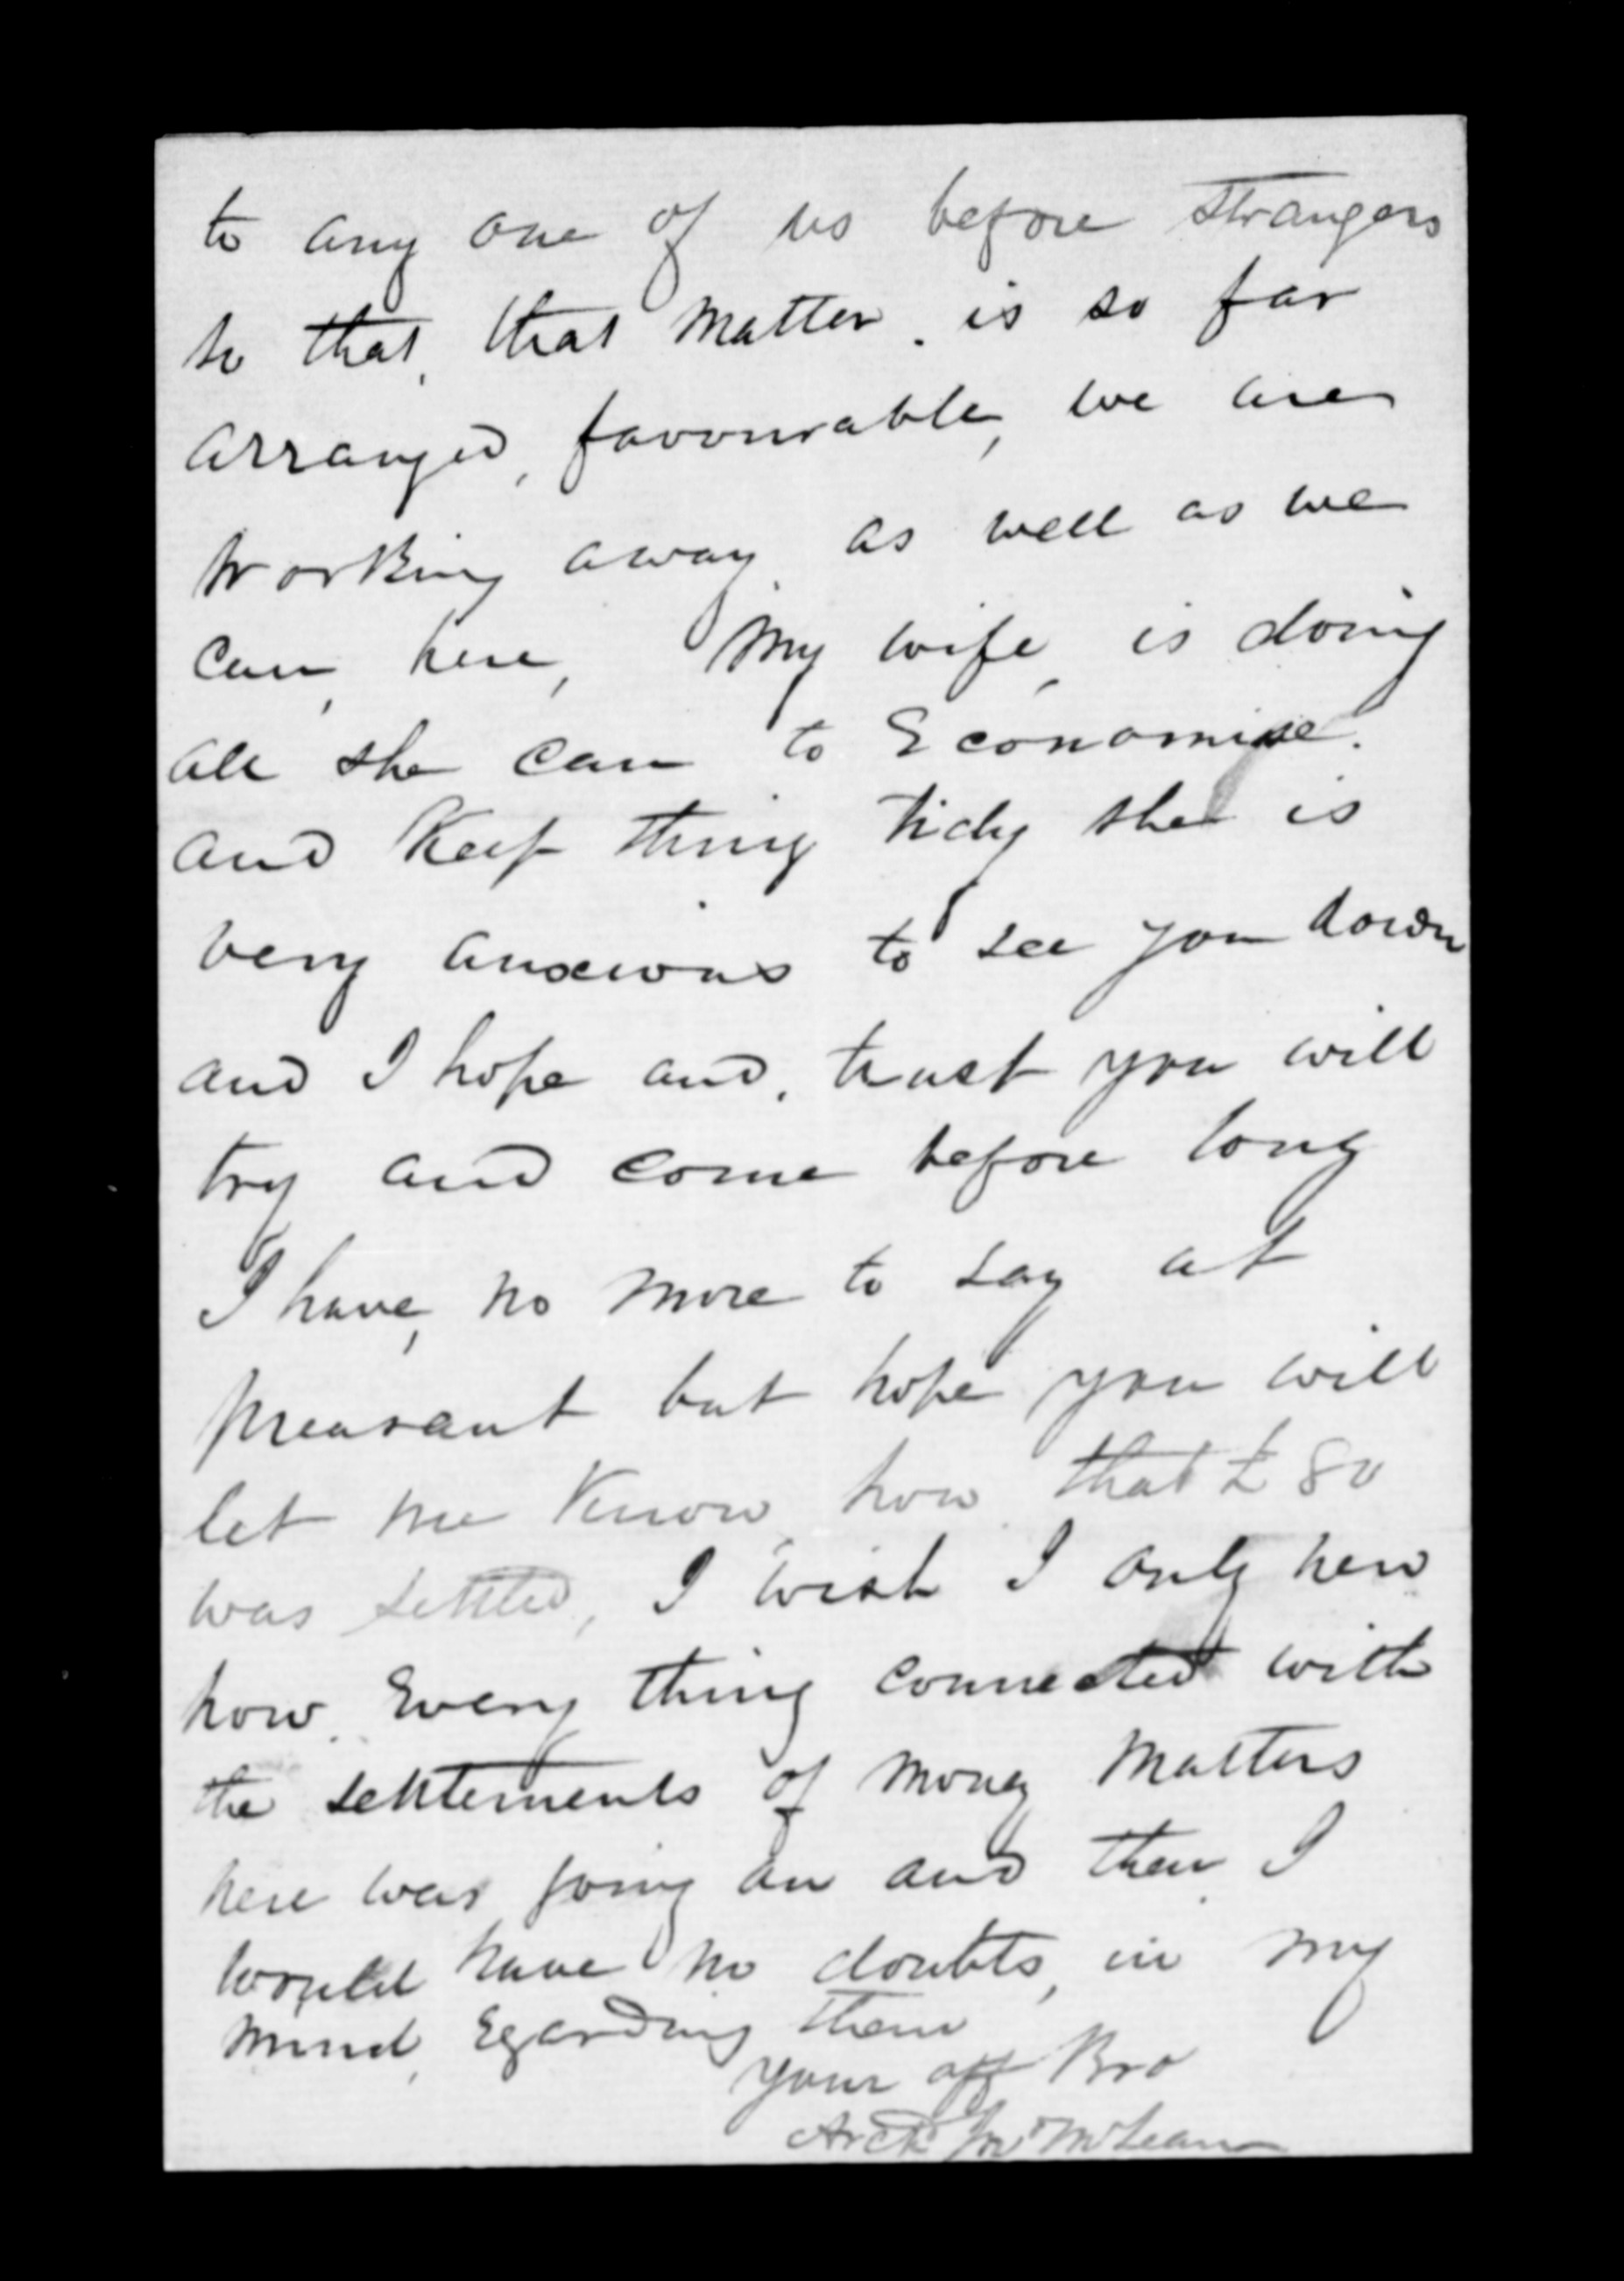 to any one of us before strangers
so that, that matter. is so far
arranged, favourable, we are
working away, as well as we
can, here, My wife, is doing
all she can to Economise.
and Keep thing tidy she is
very anxious to see you down
and I hope and, trust you will
try and come before long
I have, no more to say at
preasant but hope you will
let me Know, how that £80
was settled, I wish I only new
how. Every thing connected with
the settlements of money matters
here was going on and then I
would have no doubts, in my
mind, Egarding them
your aff Bro
Archd Jno McLean